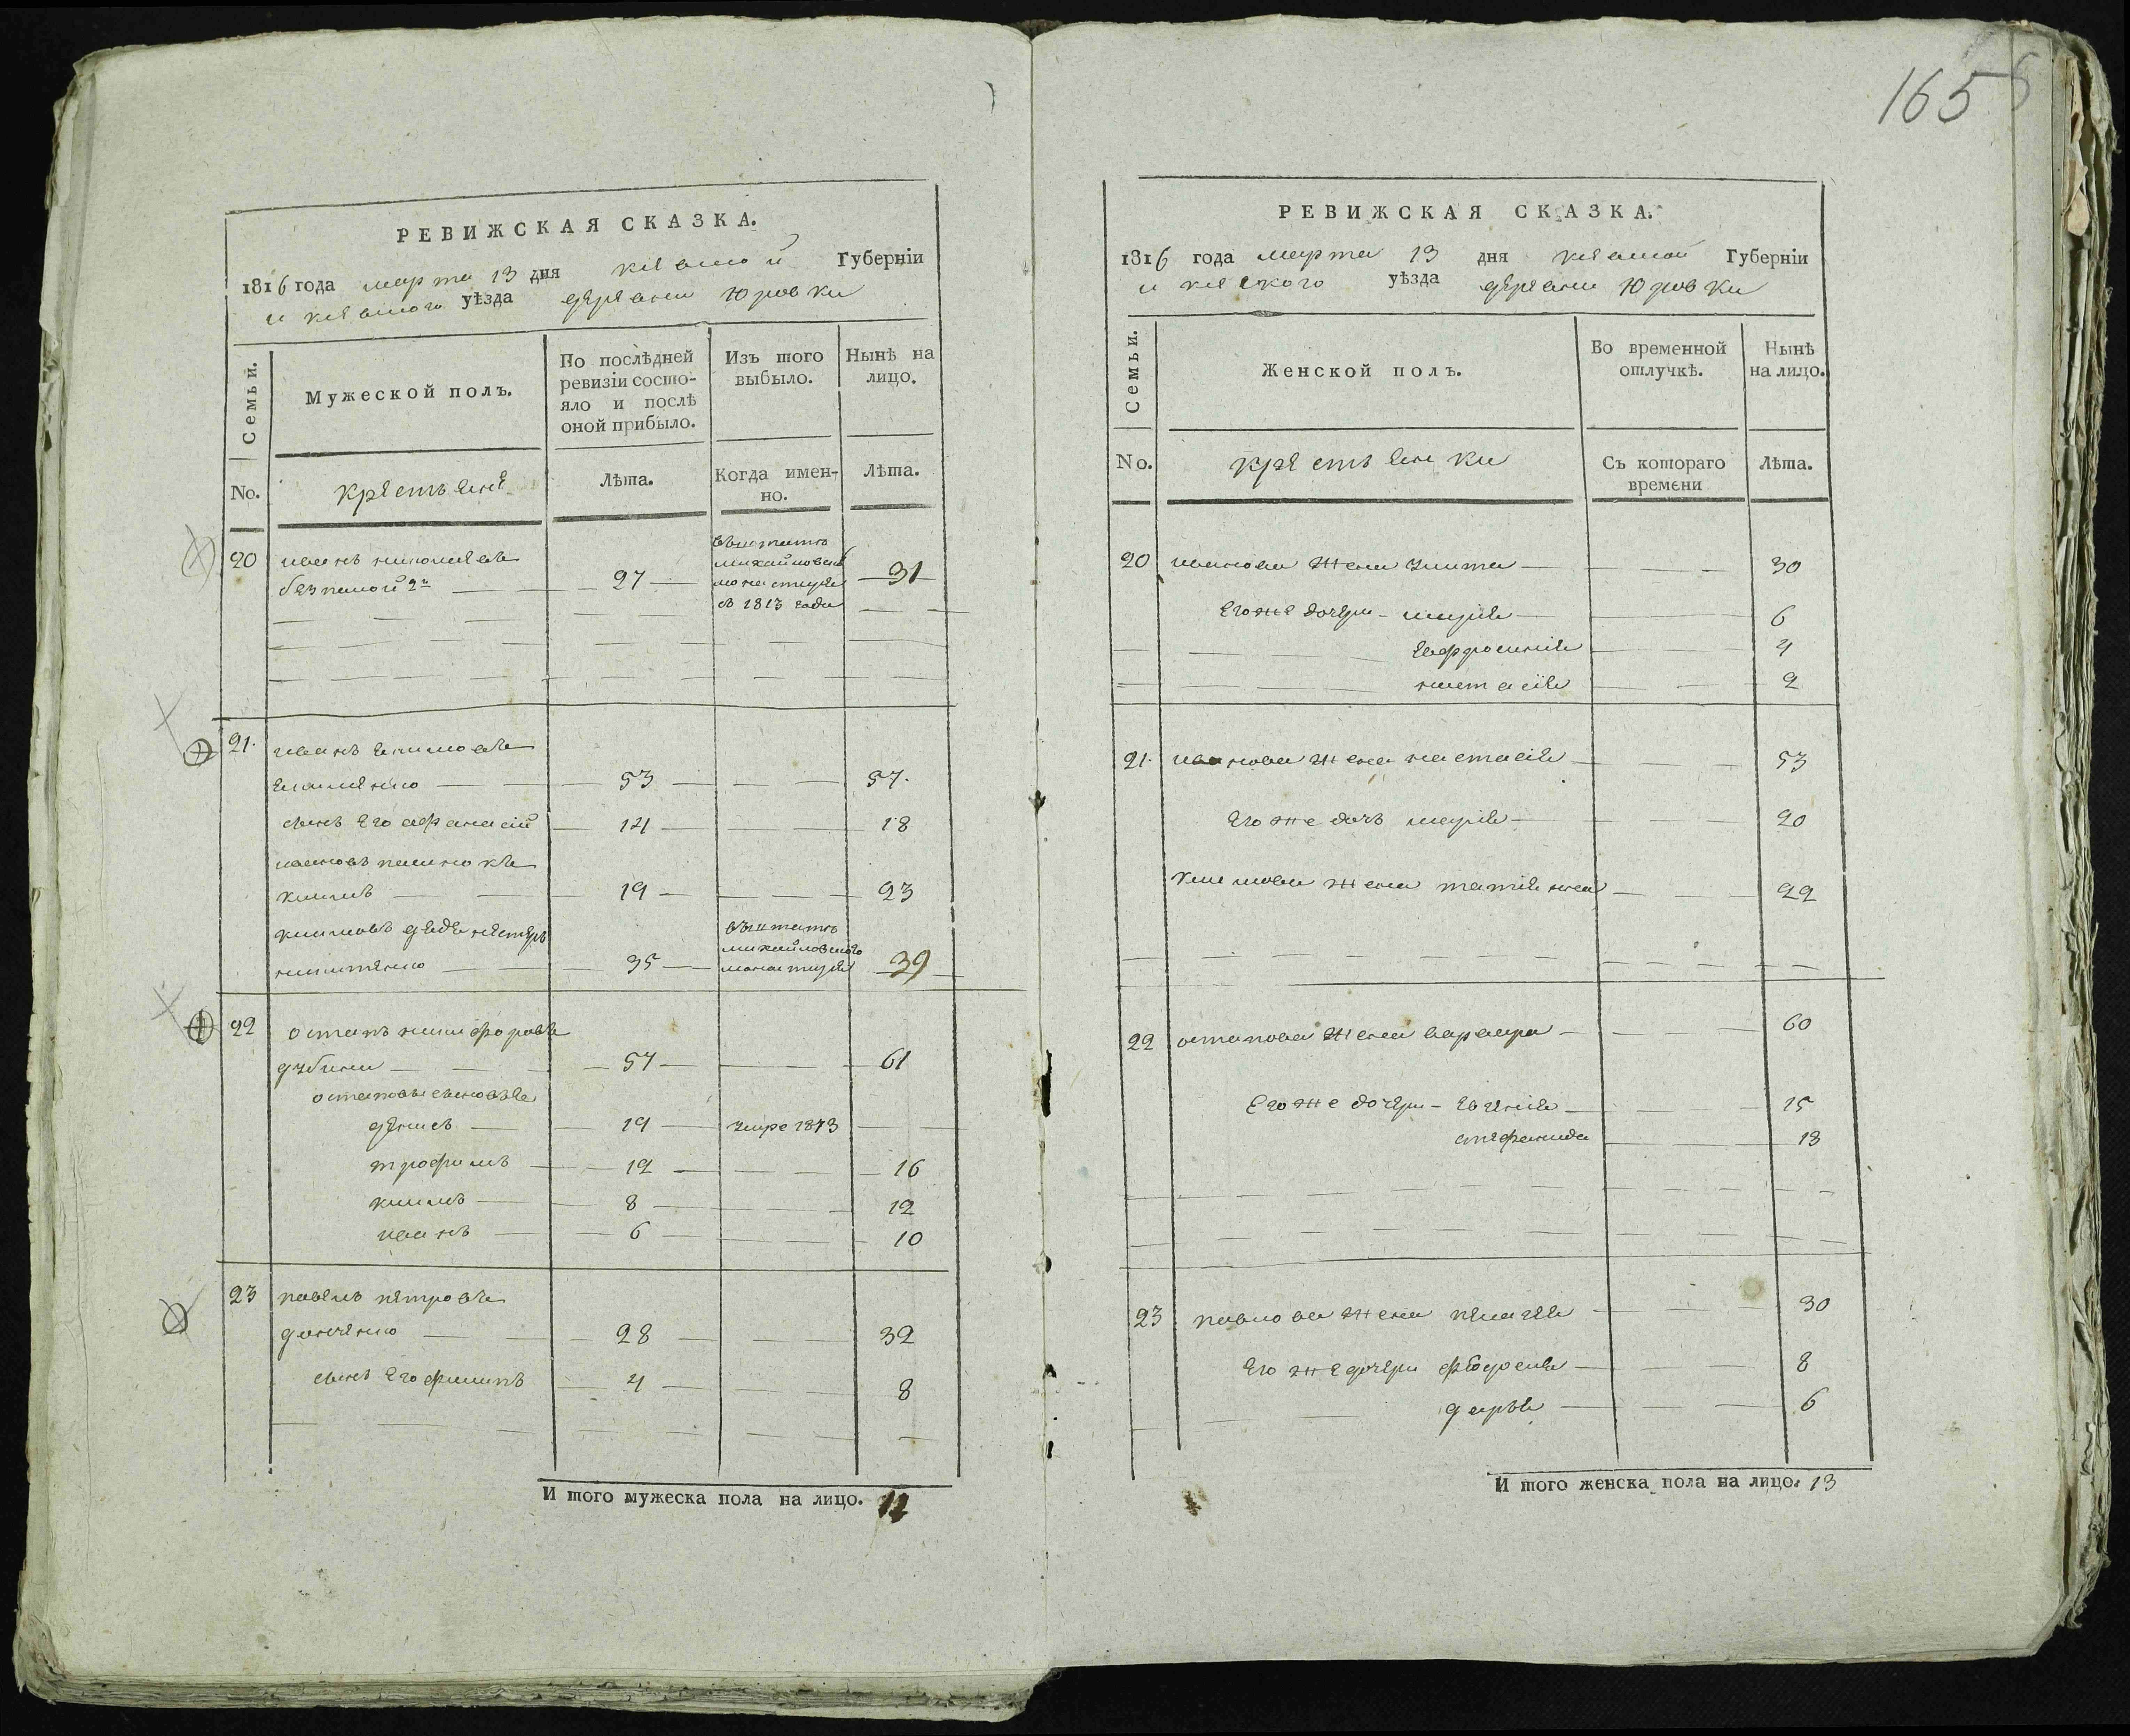 165
РЕВИЖСКАЯ СКАЗКА.
1816 года марта 13 дня киевской Губерніи
и киевского уѣзда деревни Юровки
Семьи.
Мужеской полъ.
По послѣдней ревизіи состо-
яло и послѣ
оной прибыло.
Изъ того
выбыло.
Нынѣ на
лицо.
No.
крестьяне
Лѣта.
Когда имен-
но.
Лѣта.
20 иванъ николаевъ
безпалой 2й 27 31
михайловского
монастыря
в 1813 года
21. иванъ
53 57.
сынъ его афанасий 14 18
ивановъ
климъ 19 23
климовъ дядя нестеръ
никитенко 35
михайловского
монастыря 39
22 остапъ никифоровъ
дубина 57 61
остаповы сыновья
денисъ 19 умре 1813
трофимъ 12 16
климъ 8 12
иванъ 6 10
23 павелъ петровъ
донченко 28 32
сынъ его филипъ 4 8
И того мужеска пола на лицо.
РЕВИЖСКАЯ СКАЗКА.
1816 года марта 13 дня киевской Губерніи
и киевского уѣзда деревни Юровки
Семьи.
Женской полъ.
Во временной
отлучкѣ.
Нынѣ
на лицо.
No.
крестьянки
Съ котораго
времени
Лѣта.
20 иванова жена улита 30
его же дочери - марія 6
евфросинія 4
настасія 2
21. иванова жена настасія 53
его же дочь марія 20
климова жена татіяна 22
22 остапова жена варвара 60
его же дочери - евгенія 15
степанида 13
23 павлова жена пелагея 30
его же дочери федосия 8
дарья 6
И того женска пола на лицо. 13